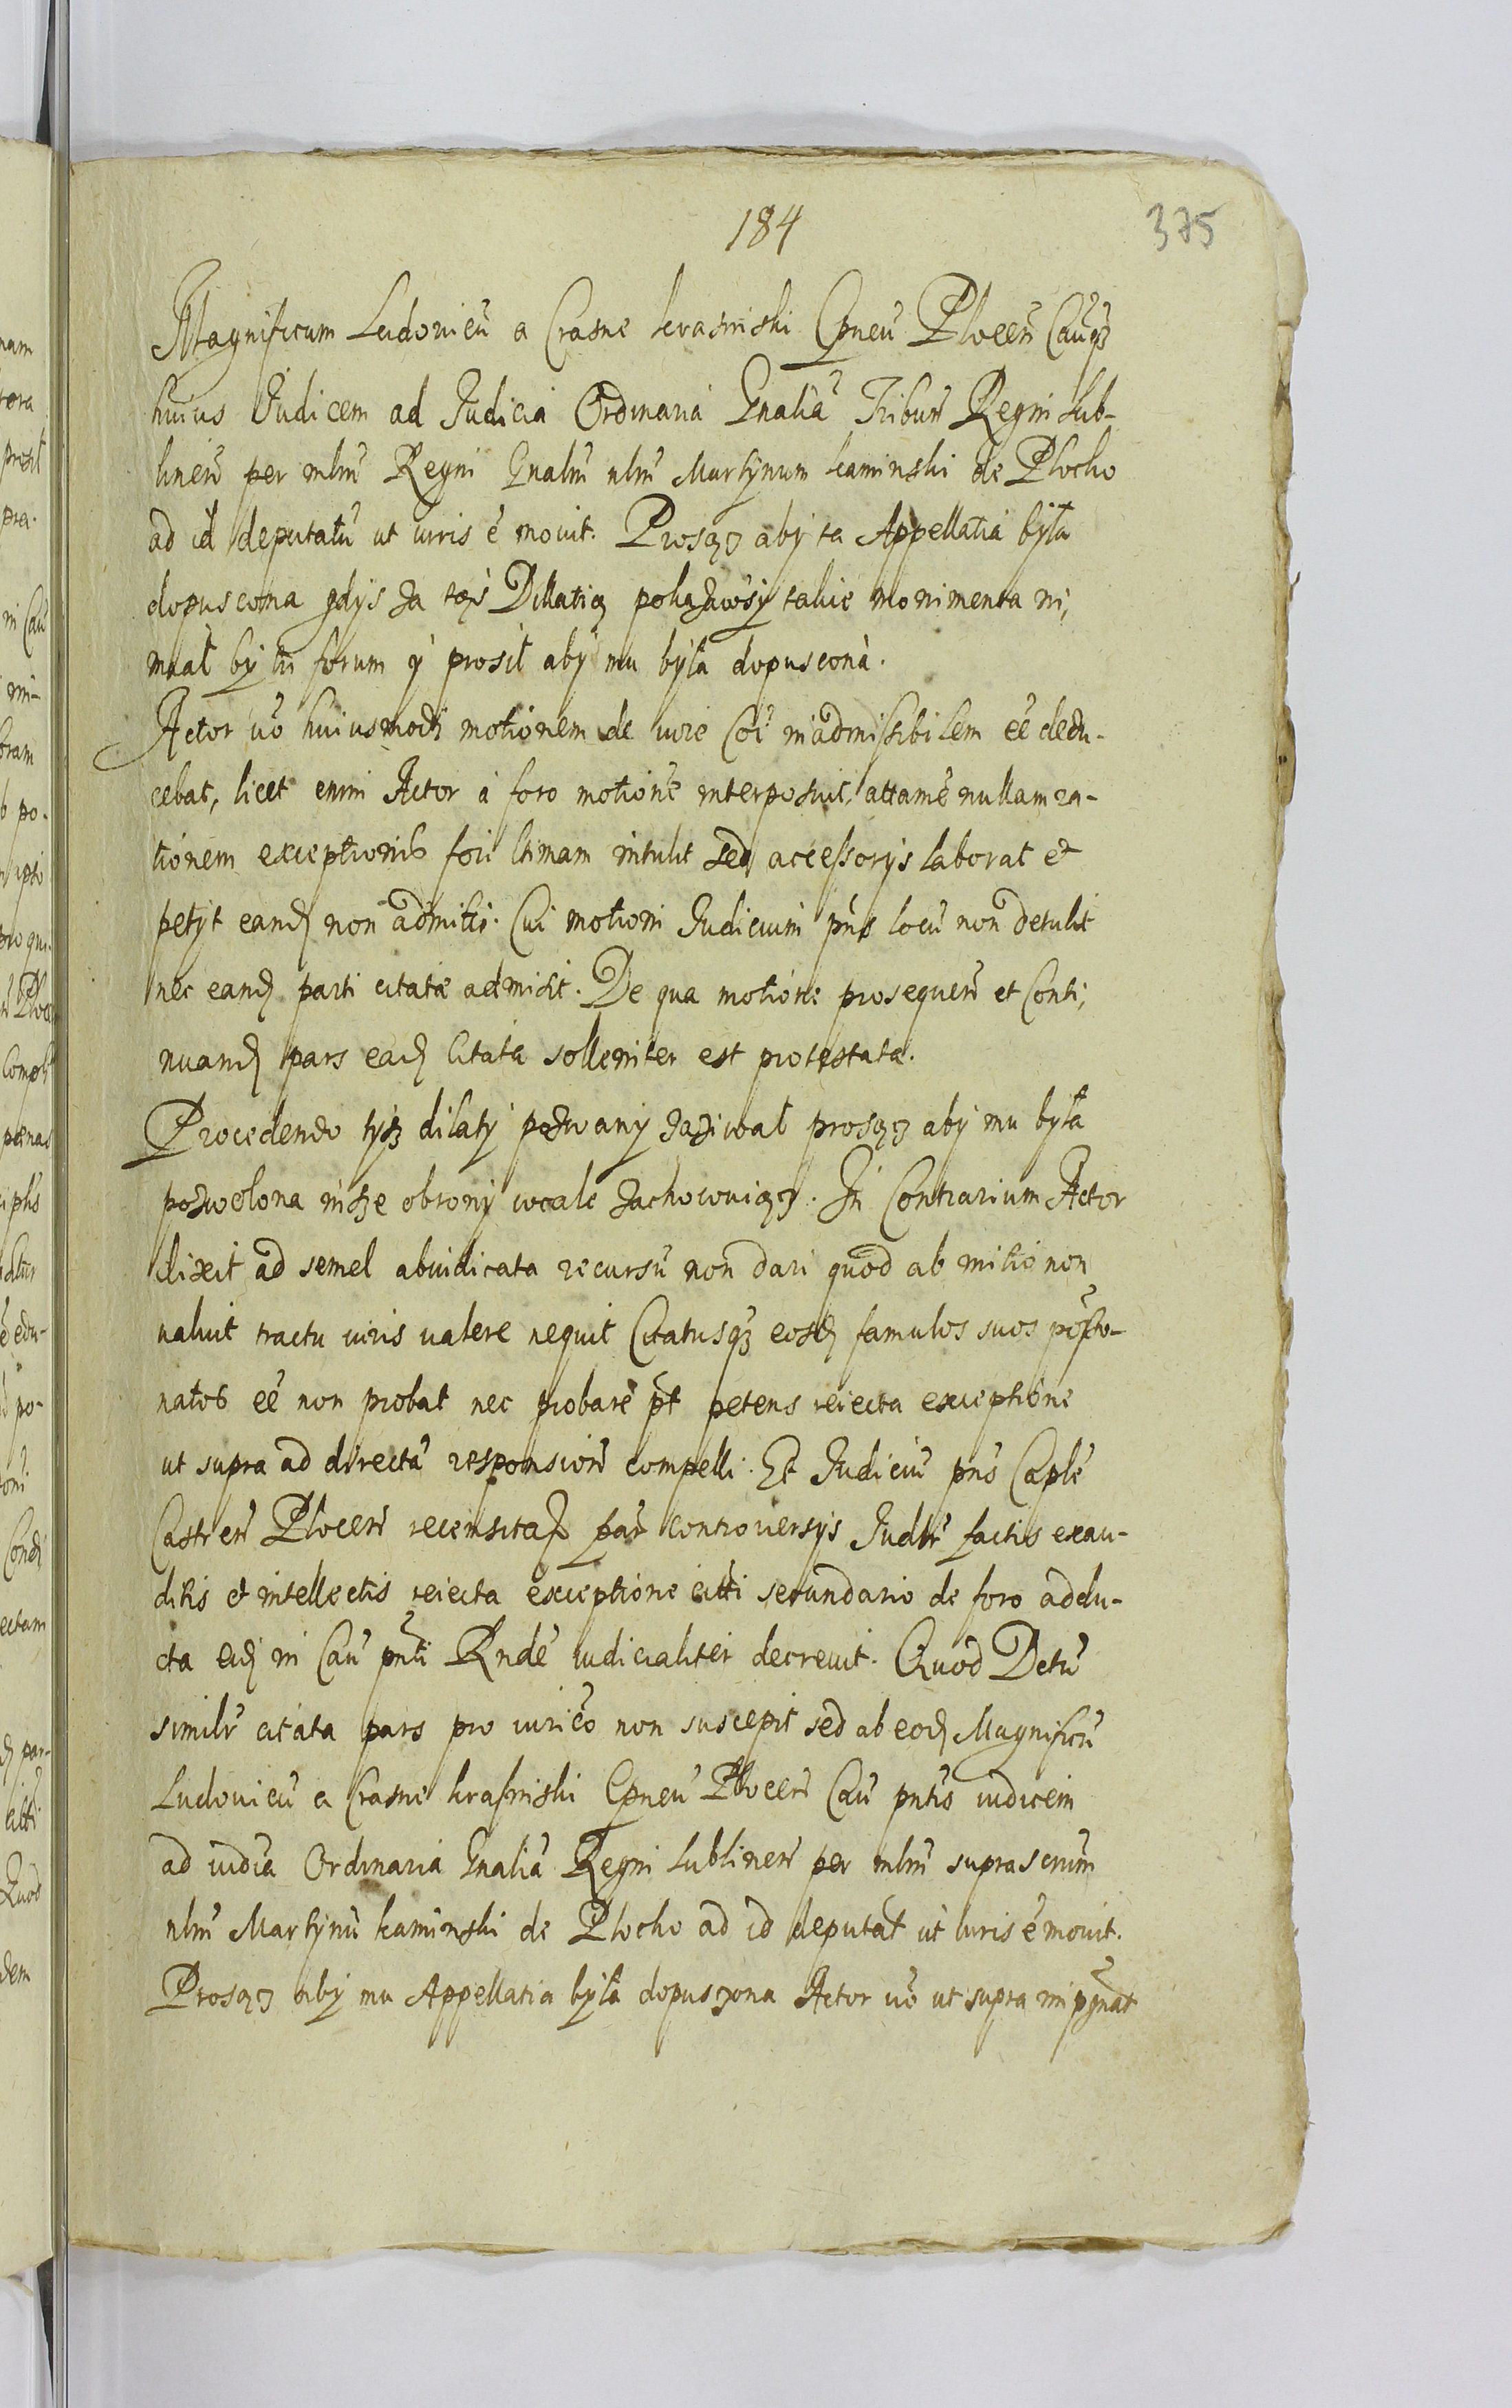 184
375
Magnificum Ludovicũ a Crasne Krasinski Cpneũ Plocen̄ Cauqз
huius Judicem ad Judicia Ordinaria Gnalia Tribun̄ Regni Lub-
linen̄ per mlm̄ Regni Gnalm̄ nlm̄ Martynum Kaminski de Plocko
ad id deputatũ ut iuris ẽ movit. Prosząc aby ta Appellatia byłа
dopuscona gdys za tąż Dillatią pokazawsy takie monimenta ni,
miał by tu forum y prosił aby mu była dopuscona.
Actor vō huiusmodi motionem de iure Coi inadmissibilem eē dedu-
cebat, licet enim Actor a foro motionē interposuit, attamē nullam ra-
tionem exceptionis fori ltimam intulit sed accessorys laborat et
petyt eand non admitti. Cui motioni Judicium pns̄ locũ non detulit
nec eand parti citatæ admisit. De qua motione prosequen̄ et Conti,
nuand pars ead Citata solleniter est protestata.
Procedendo tyz dilaty pozwany zaziwał prosząc aby mu była
pozwolona insze obrony wcale zachowuiąc. In Contrarium Actor
dixit ad semel abiudicata recursũ non dari quod ab initio non
valuit tractu iuris valere nequit Citatusqз eosd famulos suos possio-
natos eē non probat nec probare pt petens reiecta exceptione
ut supra ad directã responsion̄ compelli. Et Judiciũ pns̄ Caple
Castren̄ Plocen̄ recensitaꝝ par controversys Judlr̄ factis exau-
ditis et intellectis reiecta exceptione citti secundario de foro addu-
cta eid in Cau pnti Rndē iudicialiter decrevit. Quod Dctũ
similr̄ citata pars pro iurico non suscepit sed ab eod Magnificũ
Ludovicũ a Crasne Krasinski Cpneũ Plocen̄ Cau pntis iudicem
ad iudia Ordinaria Gnalia Regni Lublinen̄ per mlm̄ suprascrum
nlm̄ Martynũ Kaminski de Plocko ad id deputat ut iuris ẽ movit.
Prosząc aby mu Appellatia była dopuszona Actor vō ut supra impgnat